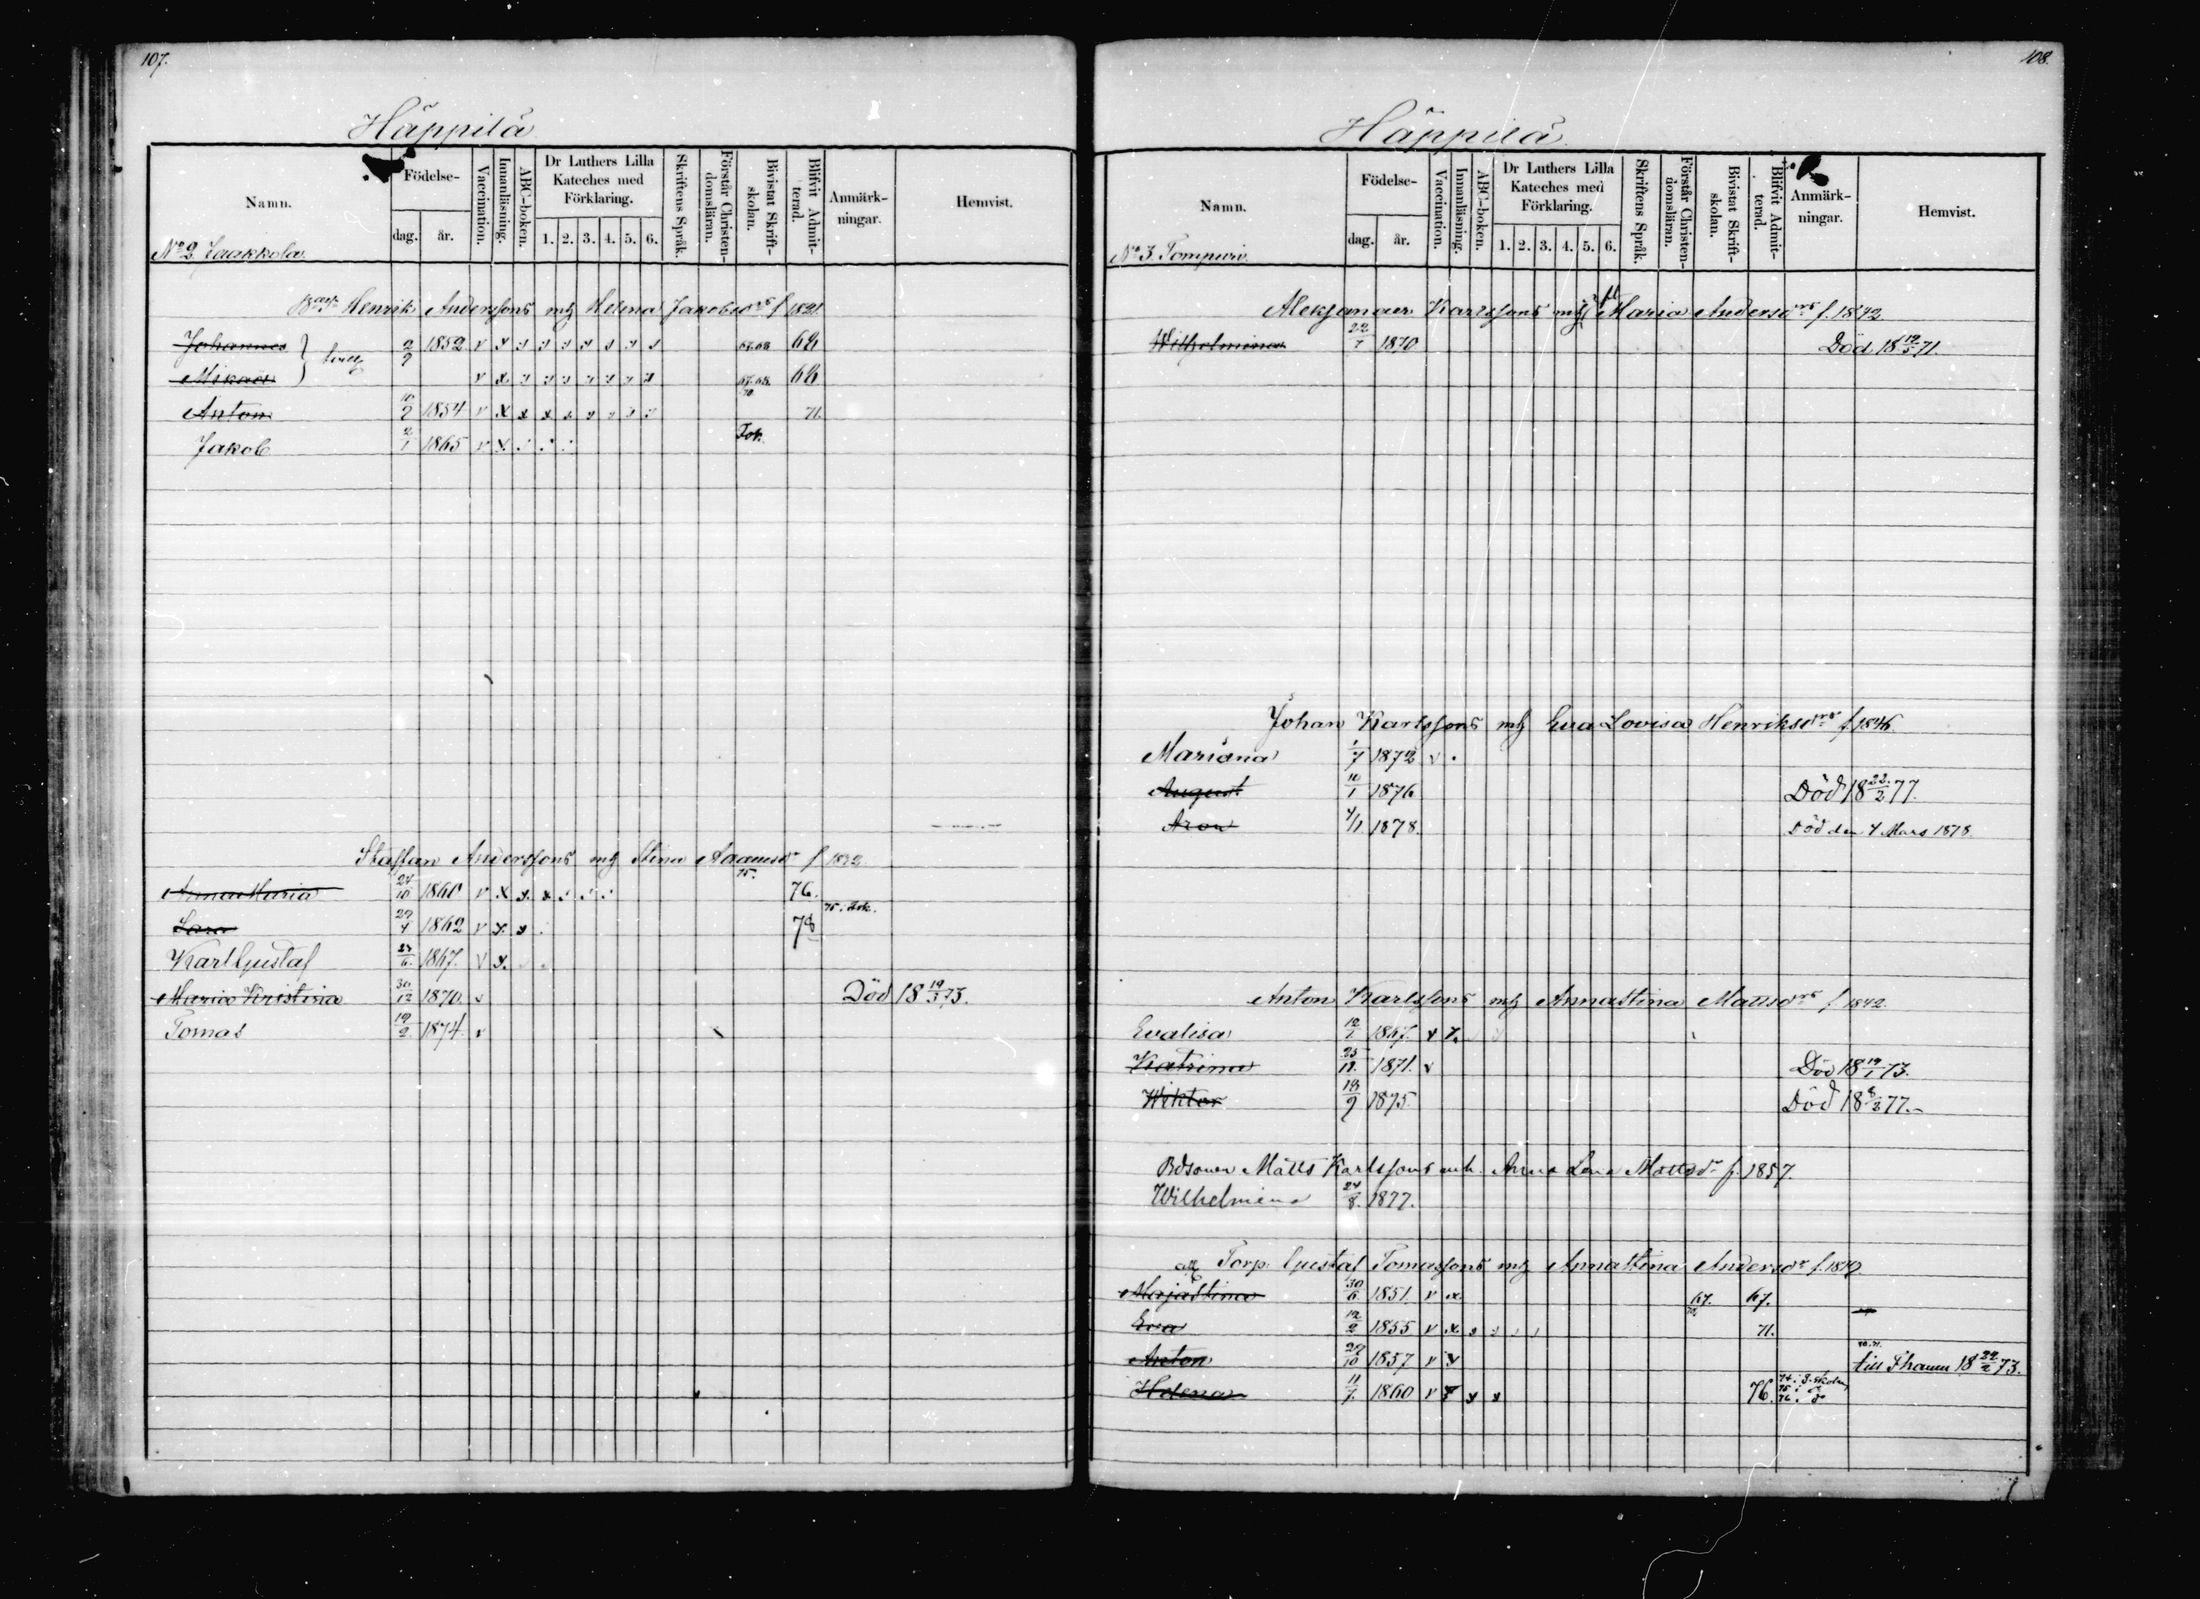 107.
Häppilä
Namn.
Födelse-
dag.
år.
Vaccination.
Innanläsning.
ABC-boken.
Dr Luthers Lilla
Kateches med
Förklaring.
1. 2. 3. 4. 5. 6.
Skriftens Språk.
Förstår Christen-
domsläran.
Bivistat Skrift-
skolan.
Blifvit Admit-
terad.
Anmärk-
ningar.
Hemvist.
No 2 Jaakkola.
Henrik Anderssons mh Helena Jakobsdrs f 1821.
Johannes 2/9 1852 v x 67.68. 68
Mikael v x 67.68. 68
70
Anton 10/9 1854 v x x x 71.
Jakob 2/1 1865 v x.
Staffan Anderssons mh Stina Adamsdr f 1832.
75.
Anna Maria 24/10 1860 v x x. x 76.
Sara 29/4 1862 v x. x 78
Karl Gustaf 24/6. 1867. v x.
Maria Kristina 30/12 1870. v Död 18 19/3 73.
Tomas 19/2. 1874. v
108.
Häppilä
Namn.
Födelse-
dag.
år.
Vaccination.
Innanläsning.
ABC-boken.
Dr Luthers Lilla
Kateches med
Förklaring.
1. 2. 3. 4. 5. 6.
Skriftens Språk.
Förstår Christen-
domsläran.
Bivistat Skrift-
skolan.
Blifvit Admit-
terad.
Anmärk-
ningar.
Hemvist.
No 3. Tompuri.
Aleksander Karlssons mh Maria Andersdrs f. 1842
Wilhelmina 22/7 1870. Död 18 12/5 71.
Johan Karlssons mh Eva Lovisa Henriksdrs f 1846.
Mariana 1/7 1872 v .
August 10/1 1876 Död 18 22/2 77.
Aron 4/1 1878. Död den 4 Mars 1878.
Anton Karlssons mh Annastina Mattsdrs f 1842.
Evalisa 12/1 1867. v x.
Katrina 25/11. 1871. v Död 18 19/1 73.
Wiktor 18/9 1875. Död 18 8/2 77.-
Bdsonen Matts Karlssons m h. Anna Lena Mattsdr f. 1857.
Wilhelmina 24/8. 1877.
Torp. Gustaf Tomassons mh Annastina Andersdr f. 1819.
Majastina 30/6. 1851. v x 67. 67.
Eva 12/2 1855 v x 71.
70.71.
Anton 29/10 1857 v x till Fhamn 18 22/2 73.
Helena 11/7. 1860 v x x x 76. 74 i S. skolan
75 i do
76. do